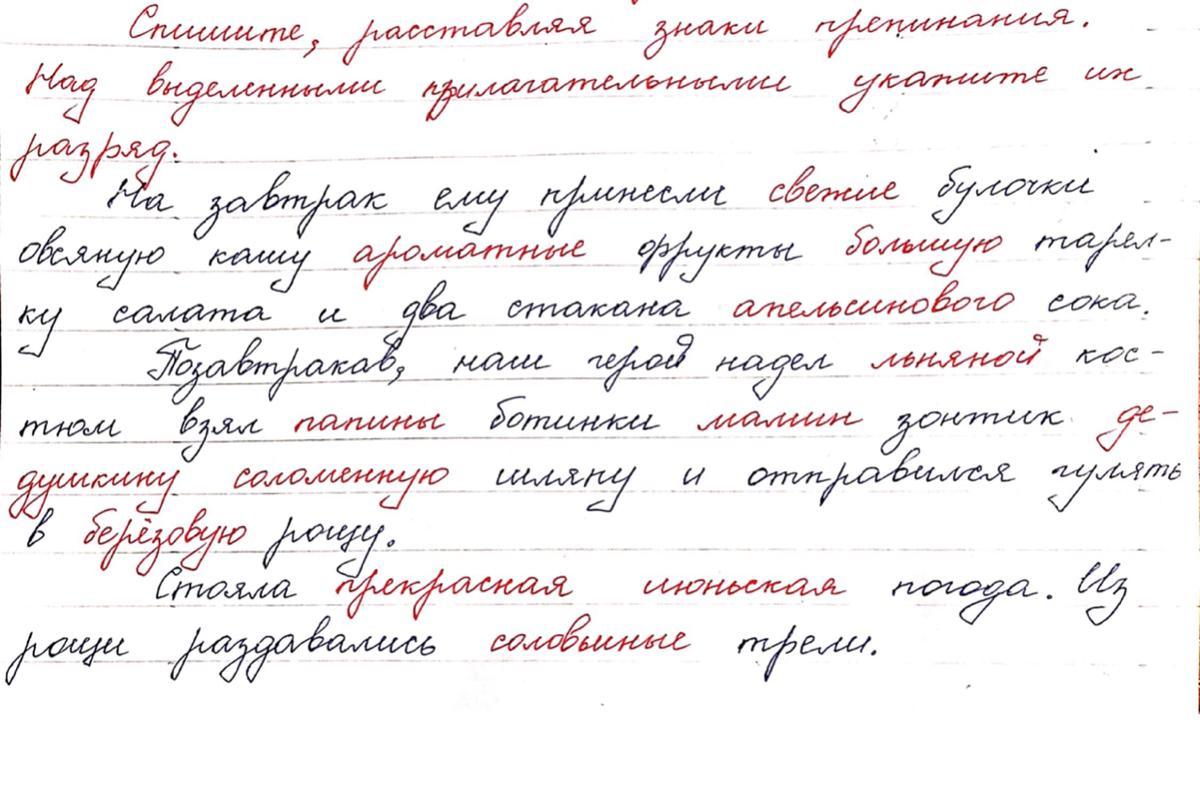 Спишите, расставляя знаки препинания.
Над выделенными прилагательными укажите их
разряд.
На завтрак ему принесли свежие булочки
овсяную кашу ароматные фрукты большую тарел-
ку салата и два стакана апельсинового сока.
Позавтракав, наш герой надел льняной кос-
тюм взял папины ботинки мамин зонтик де-
душкину соломенную шляпу и отправился гулять
в берёзовую рощу.
Стояла прекрасная июньская погода. Из
рощи раздавались соловьиные трели.